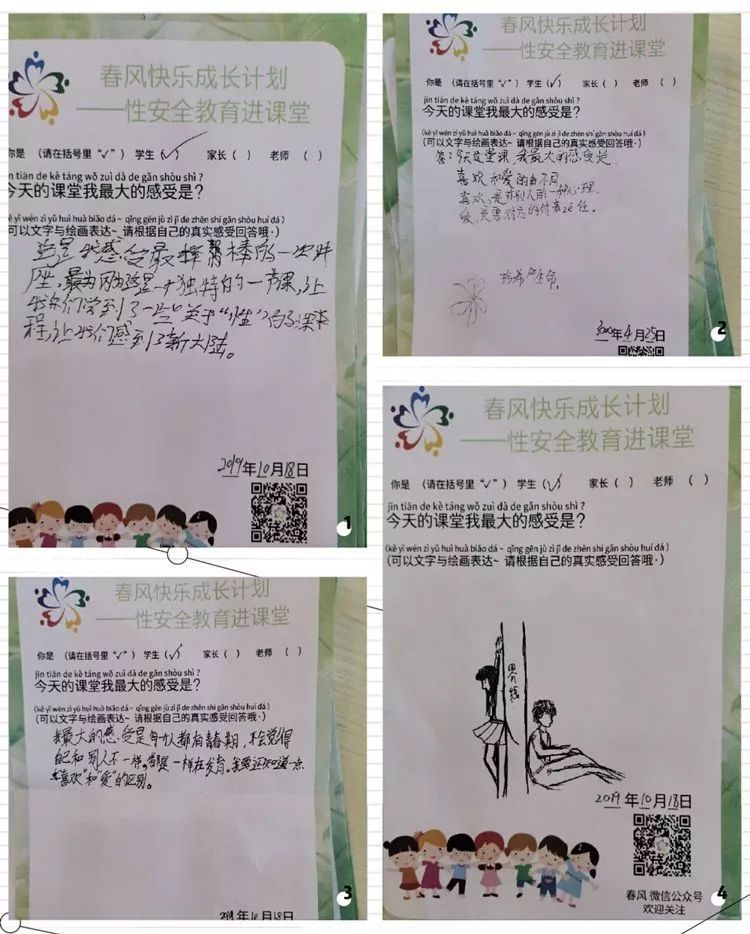 春风快乐成长计划
——性安全教育进课堂
你是 (请在括号里“√”) 学生(√) 家长( ) 老师 ( )
n tiān de kè táng wǒ zuì dà de gǎn shòu shì ?
今天的课堂我最大的感受是?
ě yǐ wén zì yǔ huì huà biǎo dá ~ qǐng gēn jù zì jǐ de zhēn shí gǎn shòu huí dá)
可以文字与绘画表达~ 请根据自己的真实感受回答哦·)
这是我感受最棒的一次讲
座,因为这是一个独特的一节课,让
我们学到了一些“关于“性”的课
程,让我们感到了新大陆。
2019年10月18日
1
春风快乐成长计划
——性安全教育进课堂
你是 (请在括号里“√”) 学生(√) 家长( ) 老师 ( )
jīn tiān de kè táng wǒ zuì dà de gǎn shòu shì ?
今天的课堂我最大的感受是?
(kě yǐ wén zì yǔ huì huà biǎo dá ~ qǐng gēn jù zì jǐ de zhēn shí gǎn shòu huí dá)
(可以文字与绘画表达~ 请根据自己的真实感受回答哦·)
答:今天这堂课,我最大的感受是
喜欢和爱的不同,
喜欢,是对别人的一种心理,
爱,是需对方的付责任。
珍希生命,
年4月25日
2
春风快乐成长计划
——性安全教育进课堂
你是 (请在括号里“√”) 学生(√) 家长( ) 老师 ( )
jīn tiān de kè táng wǒ zuì dà de gǎn shòu shì ?
今天的课堂我最大的感受是?
(kě yǐ wén zì yǔ huì huà biǎo dá ~ qǐng gēn jù zì jǐ de zhēn shí gǎn shòu huí dá)
(可以文字与绘画表达~ 请根据自己的真实感受回答哦·)
我最大的感受是每个人都有青春期,不会觉得
自己和别人不一样,都是一样在发育。我还知道一点
“喜欢”和“爱”的区别。
2019年10月18日
3
春风快乐成长计划
——性安全教育进课堂
你是 (请在括号里“√”) 学生(√) 家长( ) 老师 ( )
jīn tiān de kè táng wǒ zuì dà de gǎn shòu shì ?
今天的课堂我最大的感受是?
(kě yǐ wén zì yǔ huì huà biǎo dá ~ qǐng gēn jù zì jǐ de zhēn shí gǎn shòu huí dá)
(可以文字与绘画表达~ 请根据自己的真实感受回答哦·)
界线
2019年10月18日
春风 微信公众号
欢迎关注
4